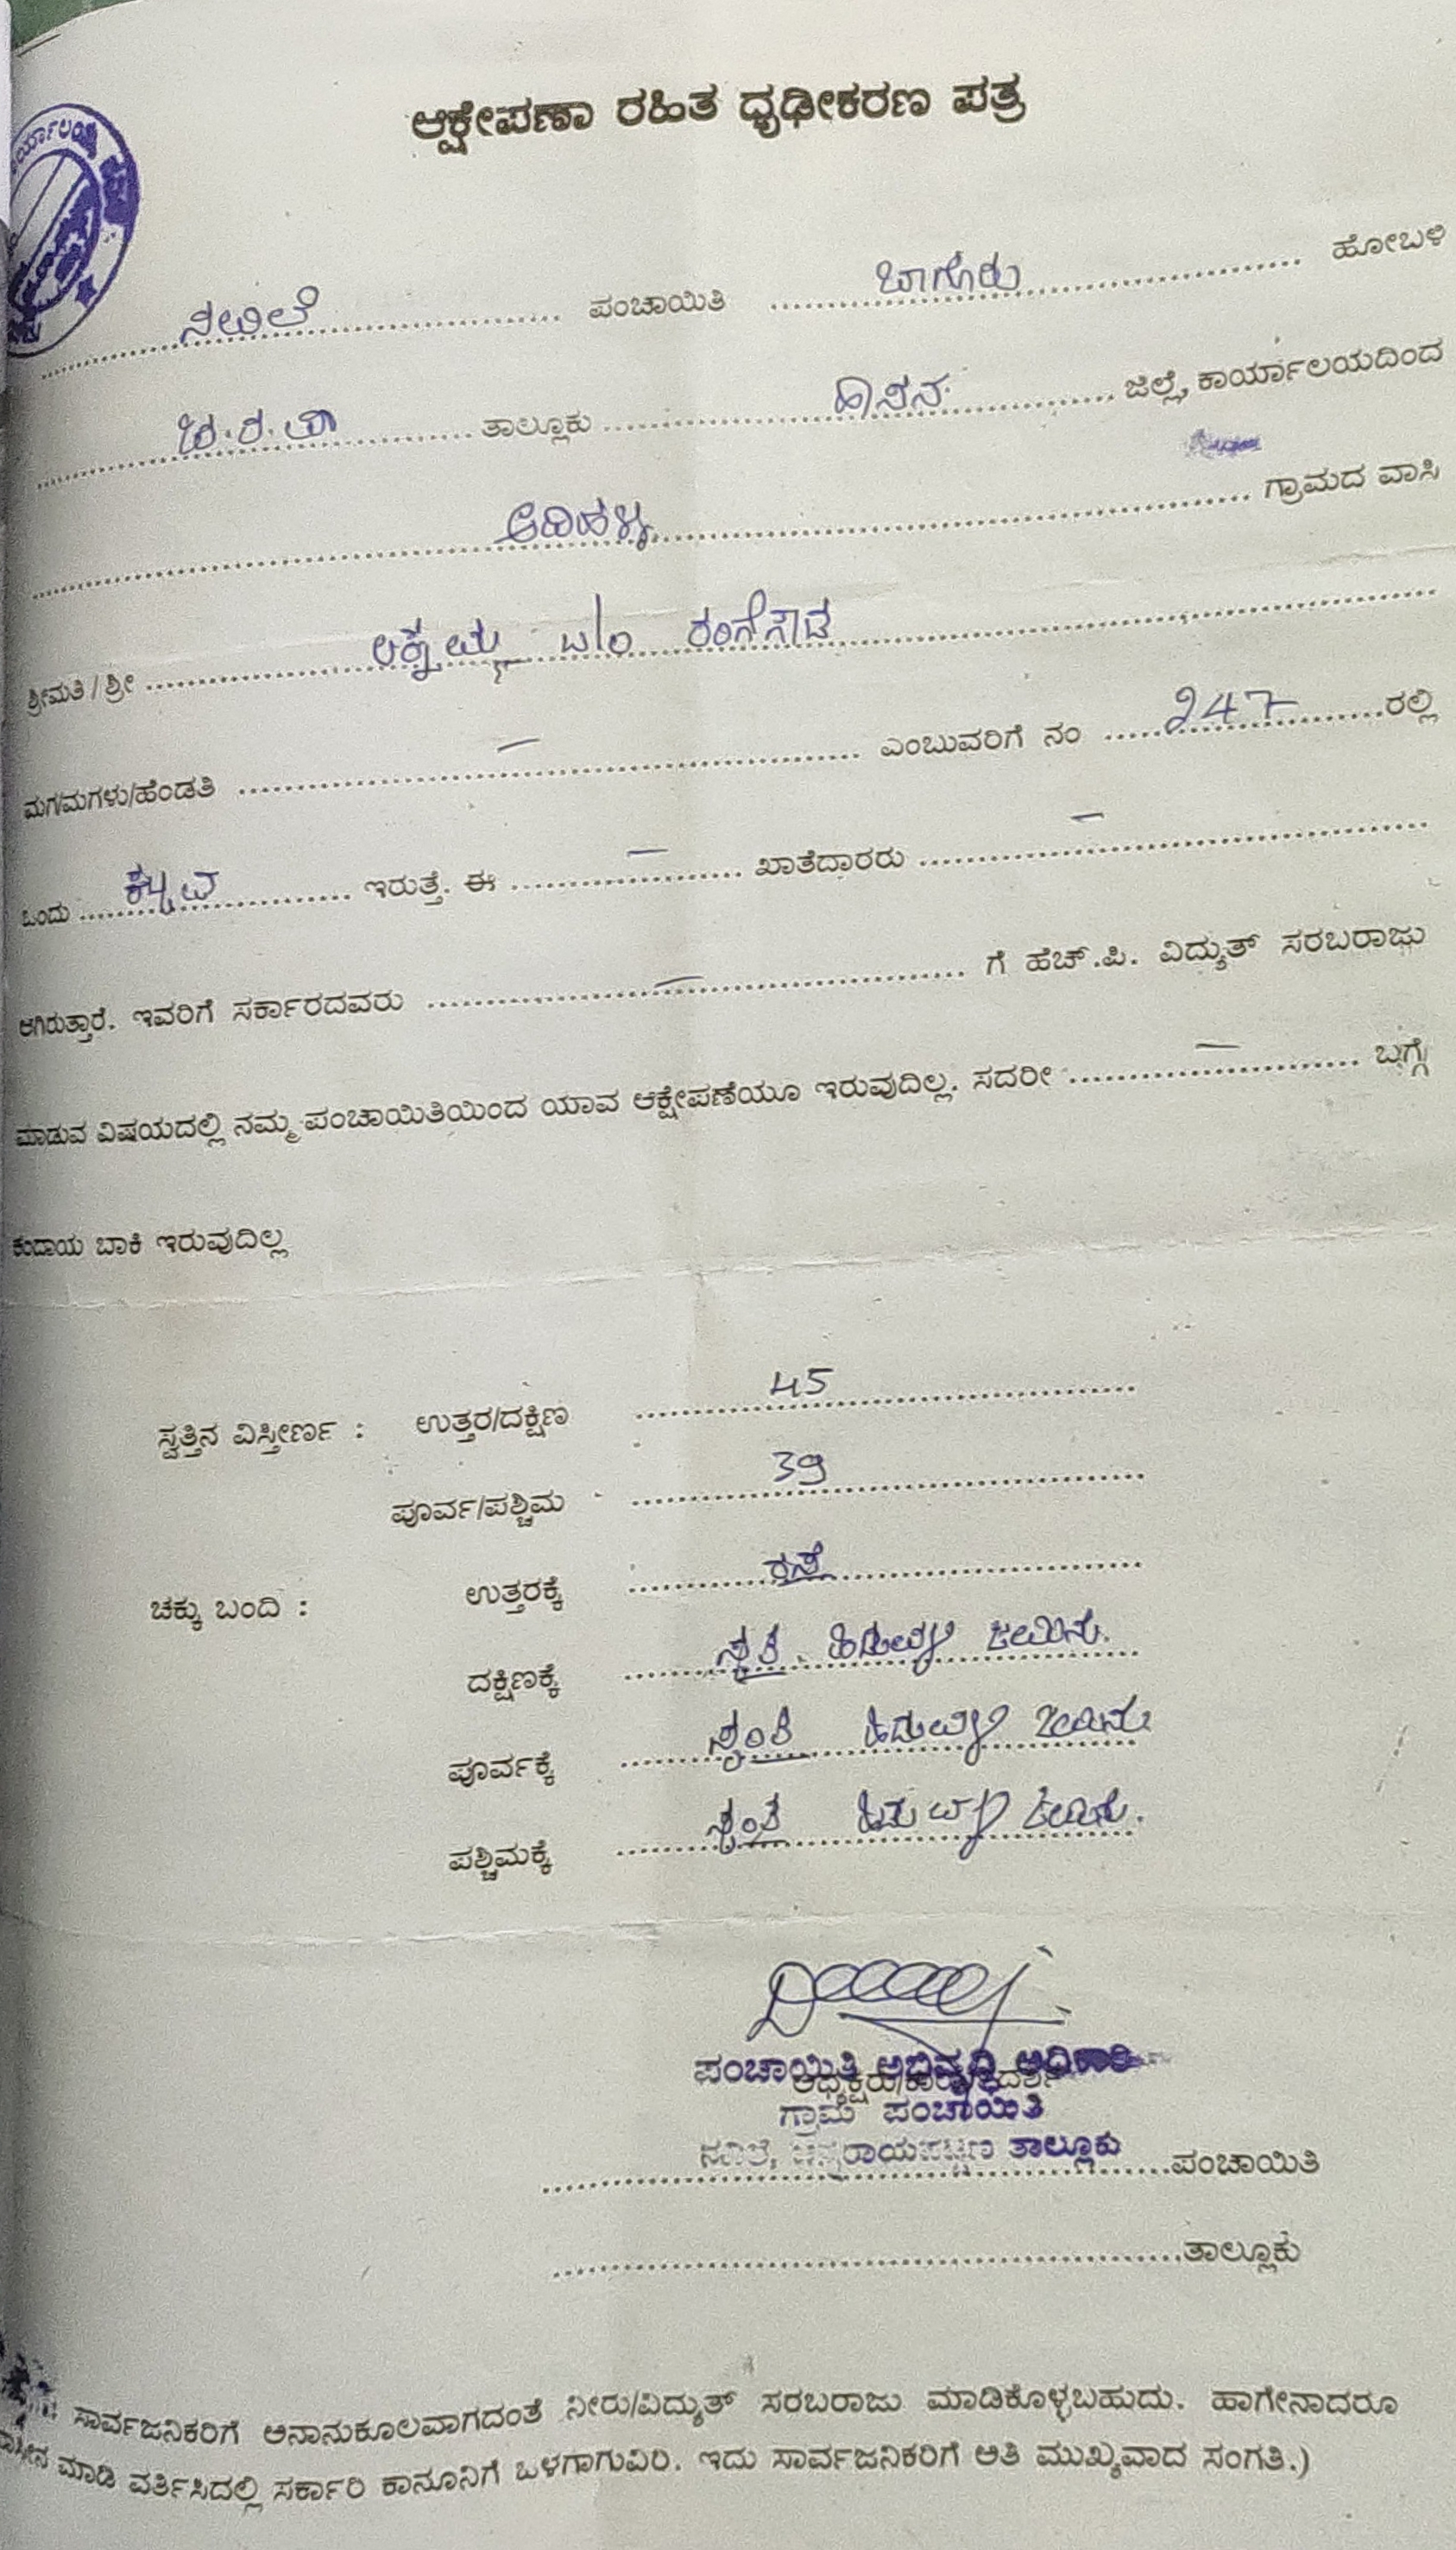 ಆಕ್ಷೇಪಣಾ ರಹಿತ ಧೃಢೀಕರಣ ಪತ್ರ
ನವಿಲೆ ಪಂಚಾಯಿತಿ ಬಾಗೂರು ಹೋಬಳಿ
ಚ.ರ.ಪಾ ತಾಲ್ಲೂಕು ಹಾಸನ ಜಿಲ್ಲೆ, ಕಾರ್ಯಾಲಯದಿಂದ
ಗ್ರಾಮದ ವಾಸಿ
ಶ್ರೀಮತಿ / ಶ್ರೀ ಲಕ್ಷ್ಮಮ್ಮ ರಂಗೇಗೌಡ
ಮಗ/ಮಗಳು/ಹೆಂಡತಿ – ಎಂಬುವರಿಗೆ ನಂ 247 ರಲ್ಲಿ
ಒಂದು ಇರುತ್ತೆ. ಈ – ಖಾತೆದಾರರು –
ಆಗಿರುತ್ತಾರೆ. ಇವರಿಗೆ ಸರ್ಕಾರದವರು – ಗೆ ಹೆಚ್.ಪಿ. ವಿದ್ಯುತ್ ಸರಬರಾಜು
ಮಾಡುವ ವಿಷಯದಲ್ಲಿ ನಮ್ಮ ಪಂಚಾಯಿತಿಯಿಂದ ಯಾವ ಆಕ್ಷೇಪಣೆಯೂ ಇರುವುದಿಲ್ಲ. ಸದರೀ – ಬಗ್ಗೆ
ಕಂದಾಯ ಬಾಕಿ ಇರುವುದಿಲ್ಲ
ಸ್ವತ್ತಿನ ವಿಸ್ತೀರ್ಣ : ಉತ್ತರ/ದಕ್ಷಿಣ 45
ಪೂರ್ವ/ಪಶ್ಚಿಮ 39
ಚಕ್ಕು ಬಂದಿ : ಉತ್ತರಕ್ಕೆ ರಸ್ತೆ
ದಕ್ಷಿಣಕ್ಕೆ ಸ್ವಂತ ಹಿಡುವಳಿ ಜಮೀನು.
ಪೂರ್ವಕ್ಕೆ ಸ್ವಂತ ಹಿಡುವಳಿ ಜಮೀನು
ಪಶ್ಚಿಮಕ್ಕೆ ಸ್ವಂತ ಹಿಡುವಳಿ ಜಮೀನು.
ಪಂಚಾಯಿತಿ ಅಭಿವೃದ್ಧಿ ಅಧಿಕಾರಿ
ಅಧ್ಯಕ್ಷರು/ಕಾರ್ಯದರ್ಶಿ
ಗ್ರಾಮ ಪಂಚಾಯಿತಿ
ನವಿಲೆ, ಚನ್ನರಾಯಪಟ್ಟಣ ತಾಲ್ಲೂಕು
ಪಂಚಾಯಿತಿ
ತಾಲ್ಲೂಕು
ಸಾರ್ವಜನಿಕರಿಗೆ ಅನಾನುಕೂಲವಾಗದಂತೆ ನೀರು/ವಿದ್ಯುತ್ ಸರಬರಾಜು ಮಾಡಿಕೊಳ್ಳಬಹುದು. ಹಾಗೇನಾದರೂ
ಮಾಡಿ ವರ್ತಿಸಿದಲ್ಲಿ ಸರ್ಕಾರಿ ಕಾನೂನಿಗೆ ಒಳಗಾಗುವಿರಿ. ಇದು ಸಾರ್ವಜನಿಕರಿಗೆ ಅತಿ ಮುಖ್ಯವಾದ ಸಂಗತಿ.)